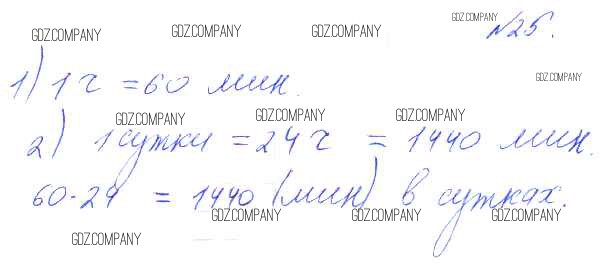 GDZ.COMPANY GDZ.COMPANY GDZ.COMPANY GDZ.COMPANY №25.
1) 1 ч = 60 мин. GDZ.COMPANY
GDZ.COMPANY GDZ.COMPANY GDZ.COMPANY
2) 1 сутки = 24 ч = 1440 мин.
60·24 = 1440 (мин) в сутках.
GDZ.COMPANY GDZ.COMPANY GDZ.COMPANY
GDZ.COMPANY